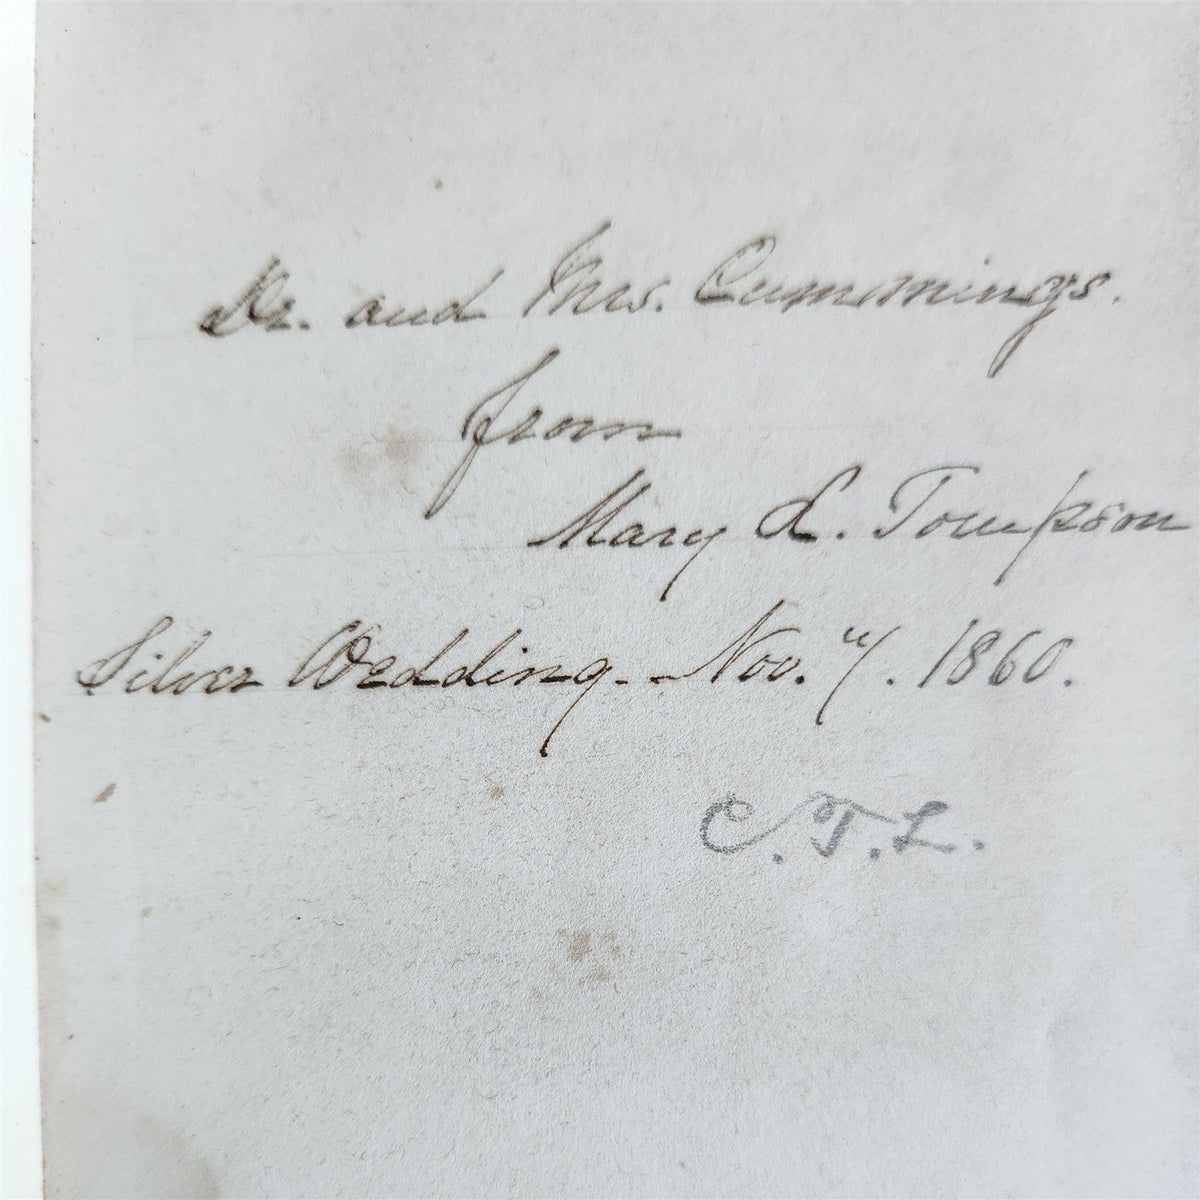 Dr. and Mrs. Cummings.
from
Mary L. Tompson
Silver Wedding. - Nov. 7. 1860.
C. T. L.